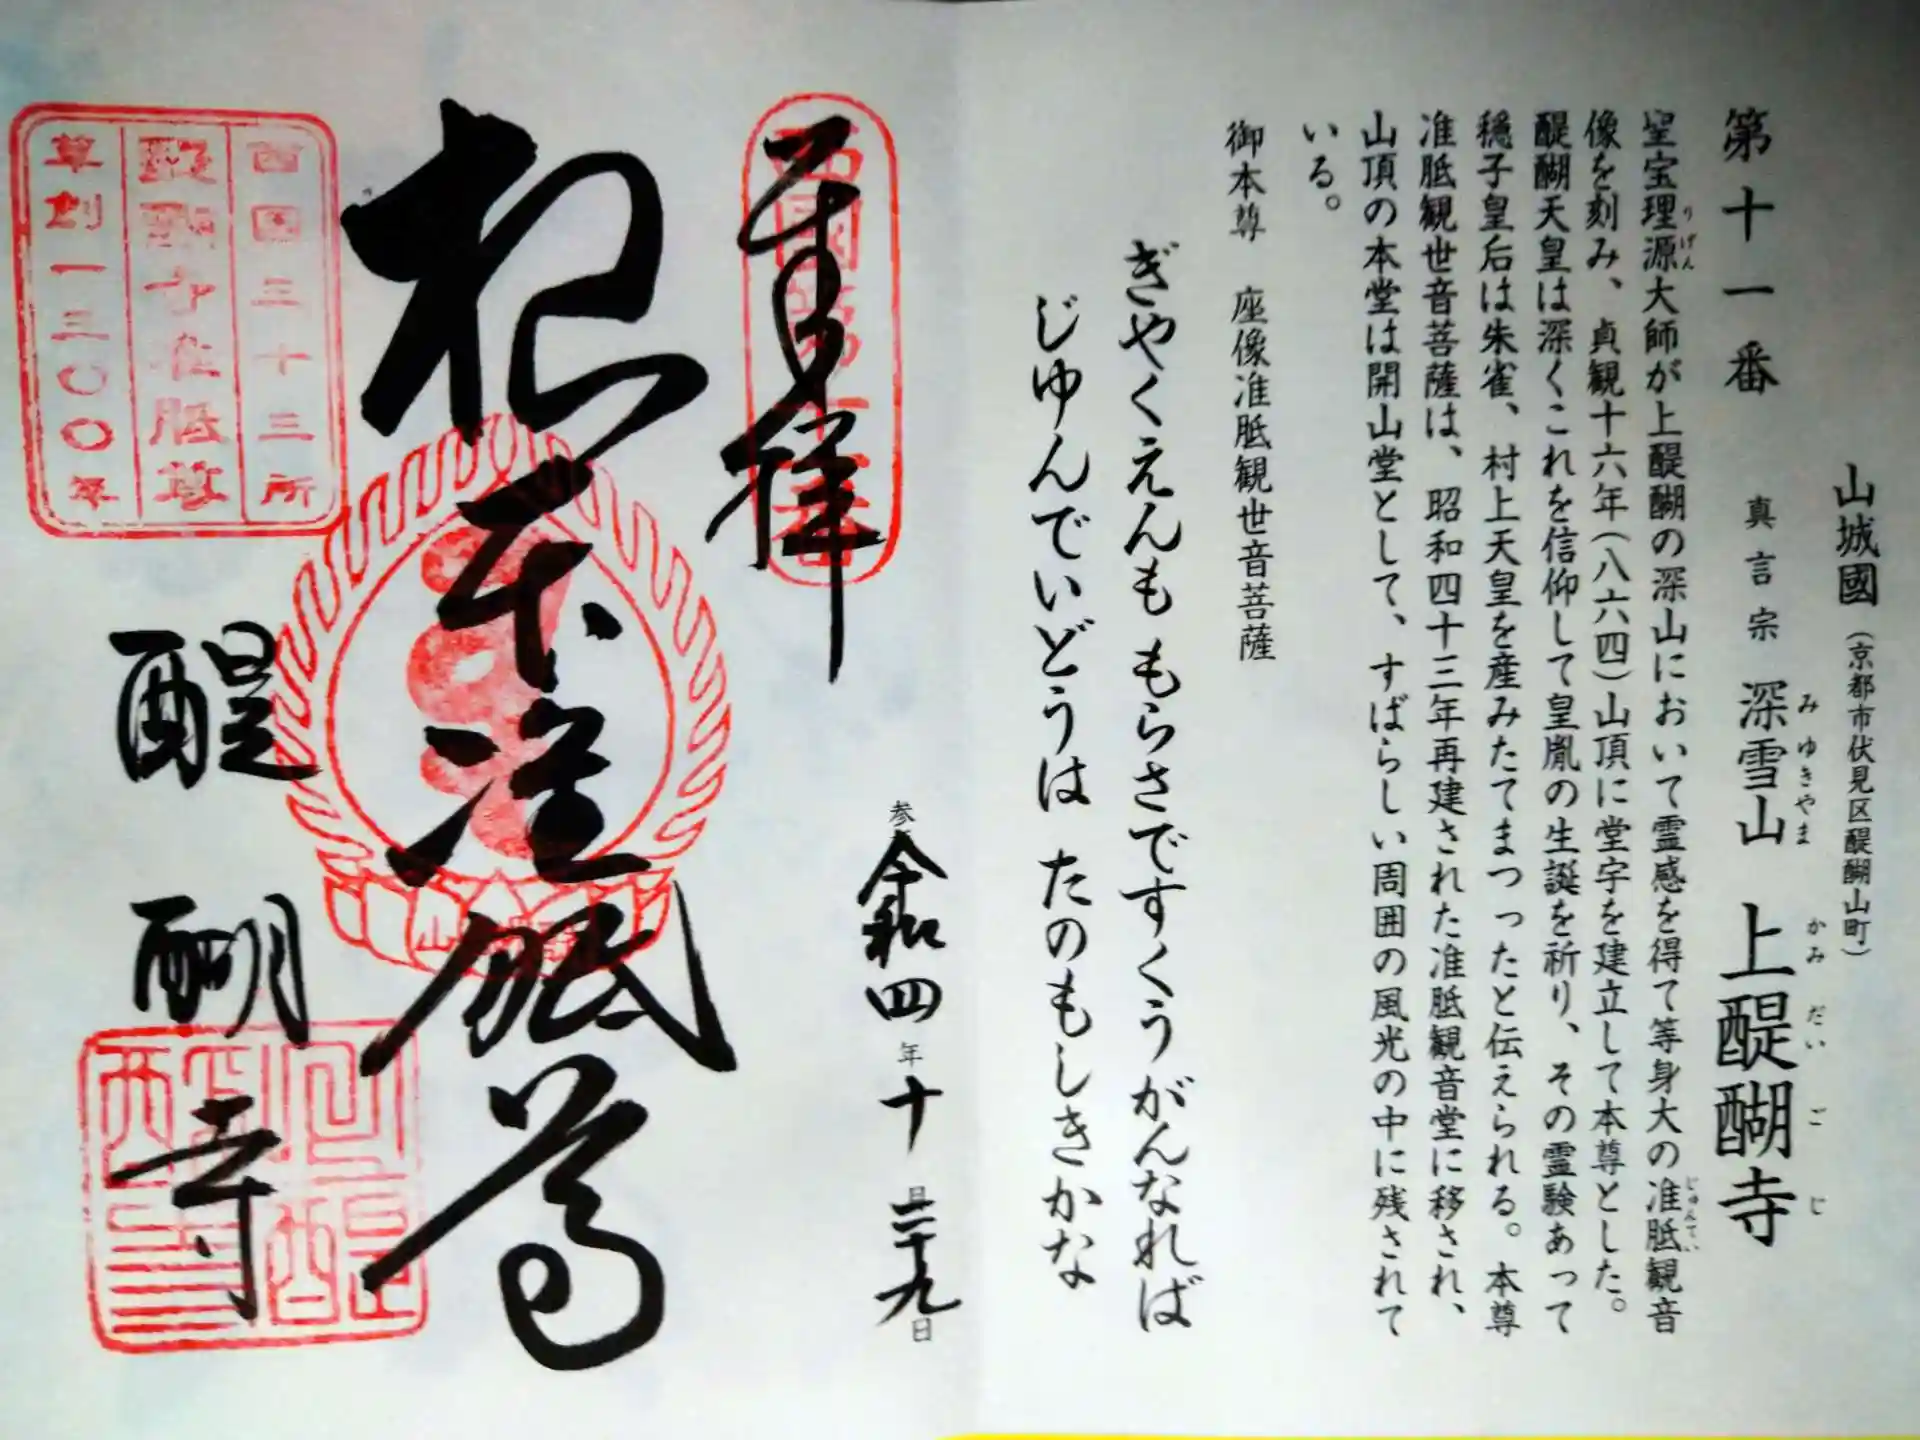 山城國（京都市伏見区醍醐山町）
第十一番 真言宗 深雪山 上醍醐寺
みゆきやま かみだいごじ
聖宝理源大師が上醍醐の深山において霊感を得て等身大の准胝観音
りげん じゅんてい
像を刻み、貞観十六年（八六四）山頂に堂字を建立して本尊とした。
醍醐天皇は深くこれを信仰して皇胤の生誕を祈り、その霊験あって
穏子皇后は朱雀、村上天皇を産みたてまつったと伝えられる。本尊
准胝観世音菩薩は、昭和四十三年再建された准胝観音堂に移され、
山頂の本堂は開山堂として、すばらしい周囲の風光の中に残されて
いる。
御本尊 座像准胝観世音菩薩
ぎやくえんも もらさですくうがんなれば
じゆんでいどうは たのもしきかな
参 令和四年十月二十九日
奉拝
根本准胝尊
醍醐寺
西国三十三所
醍醐寺准胝尊
草創一三〇〇年